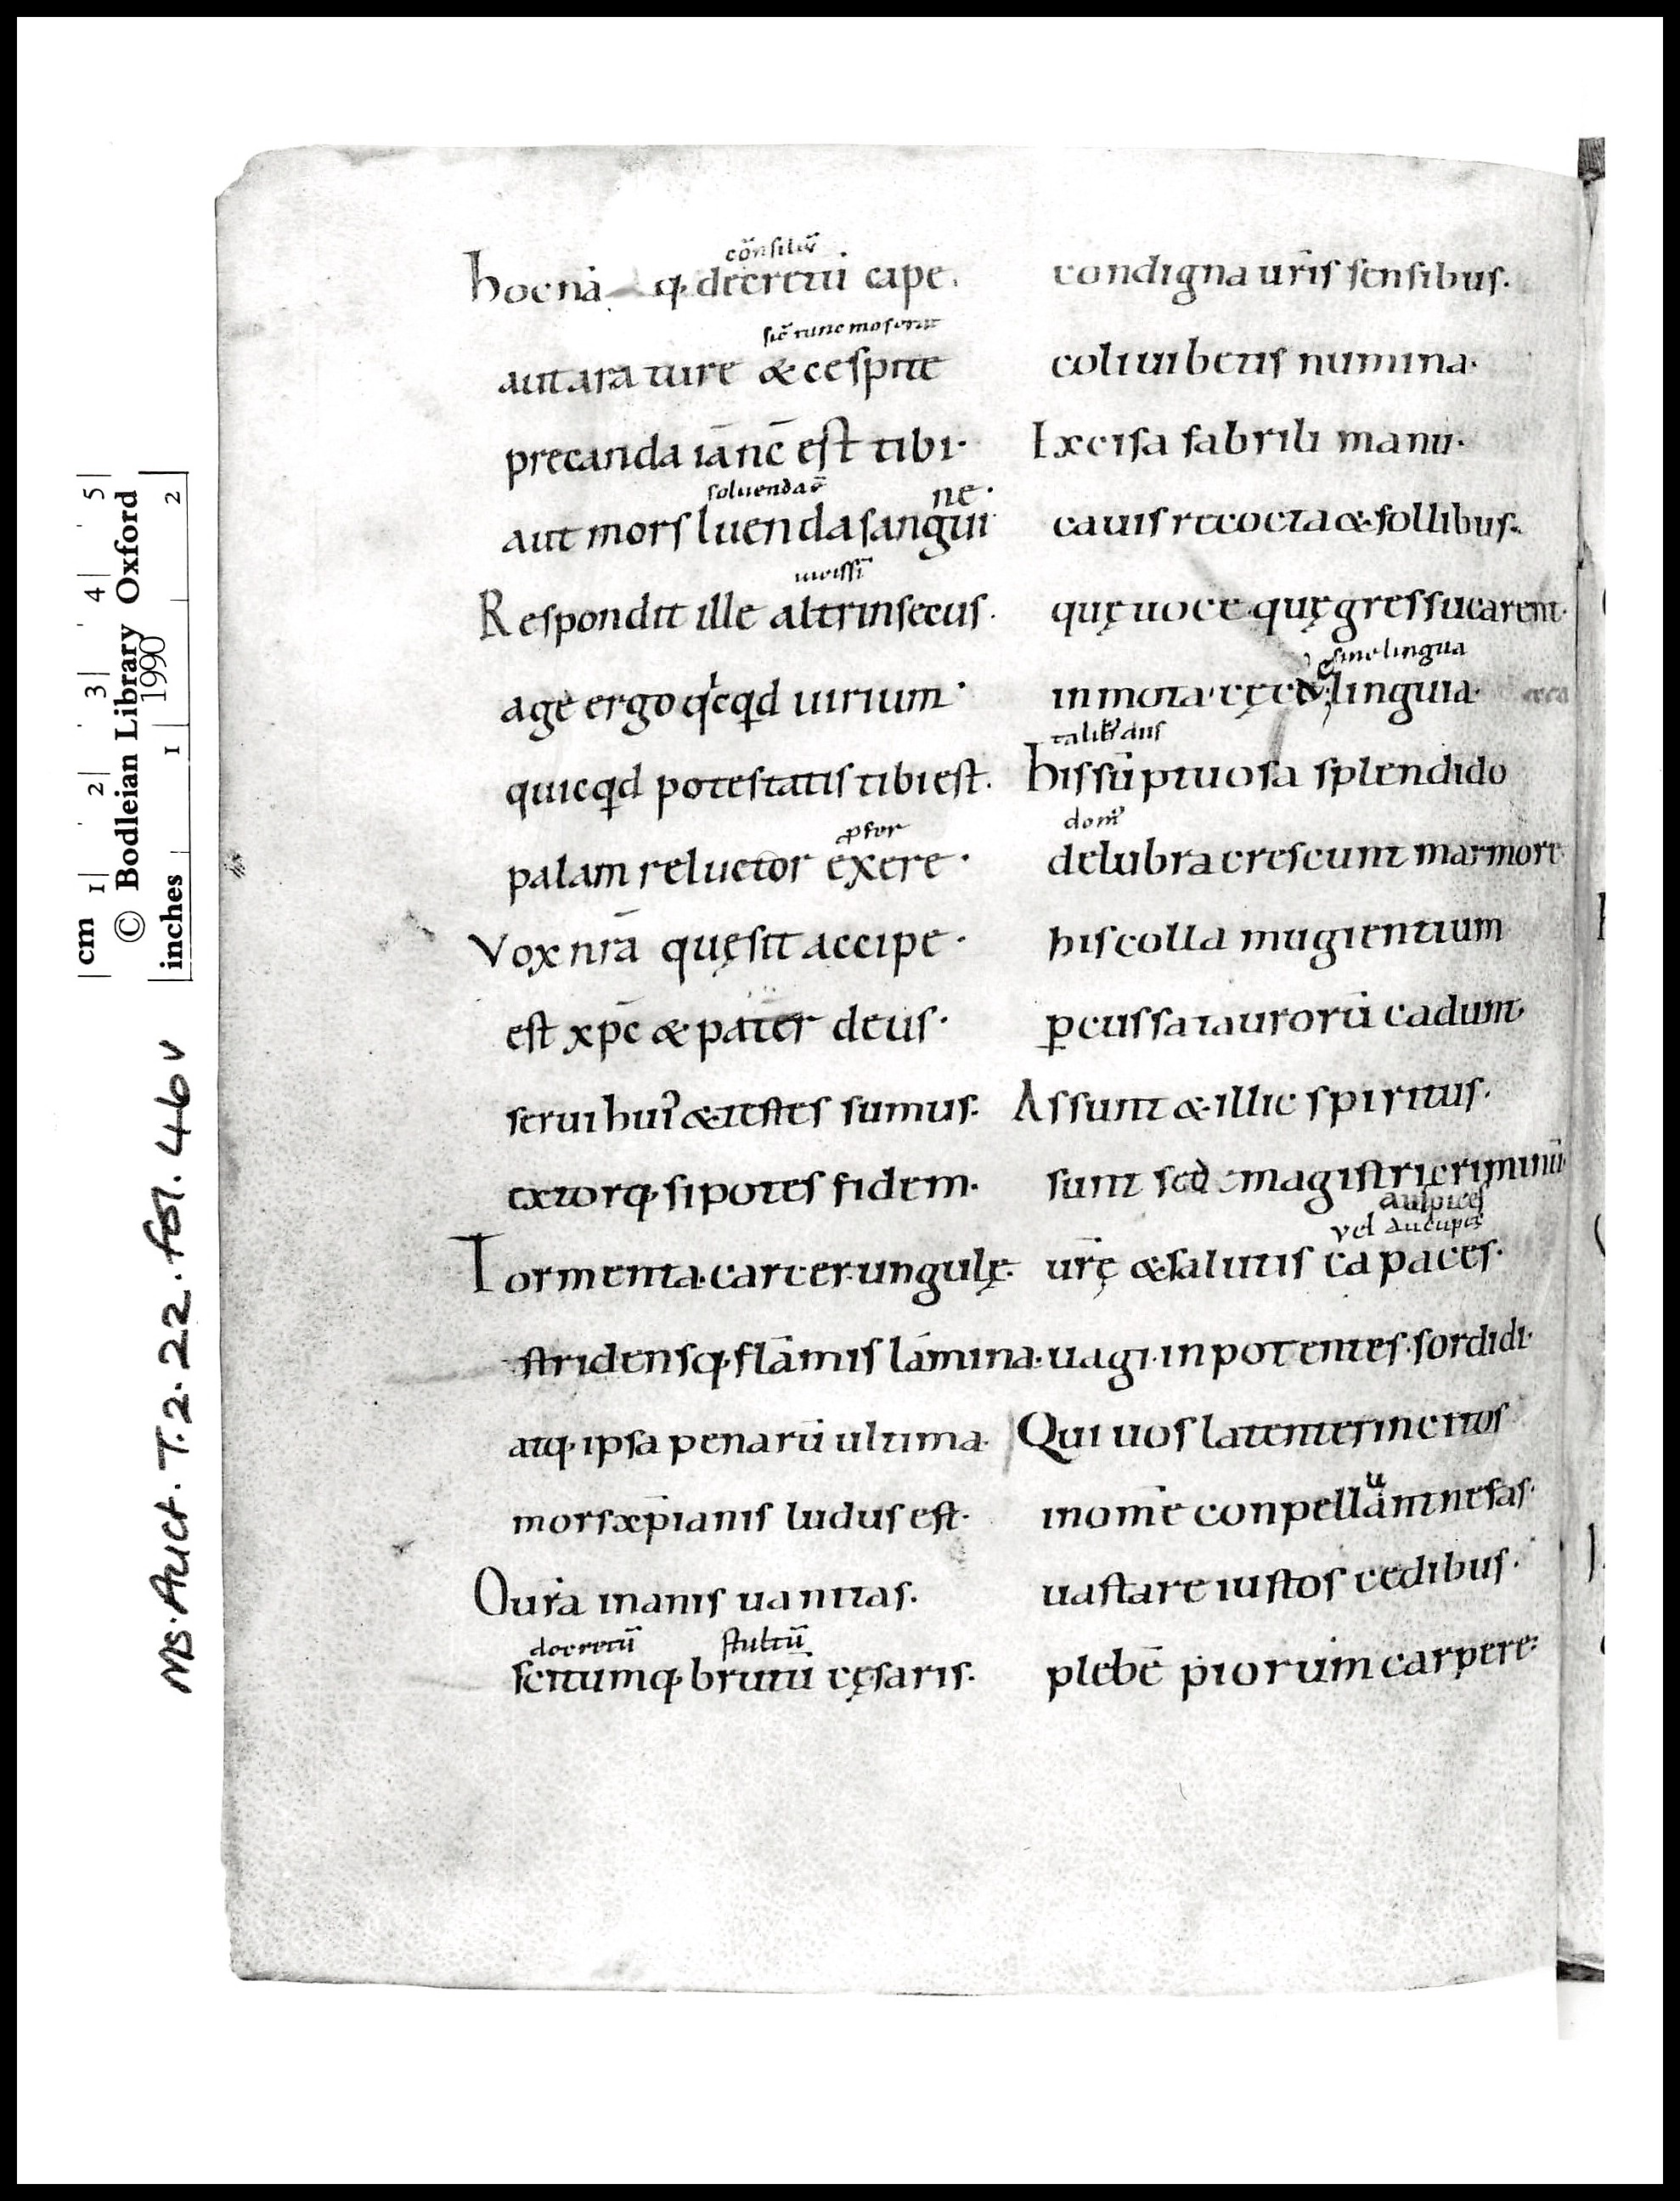 consiliū
hoc nā q· decretū cape.
sic̄ tunc mos erat
aut ara ture & cespite
precanda iā nc̄ est tibi·
soluenda ē
ne·
aut mors luenda sangui
Respondit ille altrinsecus·
age ergo qͥcqͥd uirium·
quicqͥd potestatis tibi est.
ꝓfer
palam reluctor exere·
Vox nrā quęsit accipe·
est xpc̄ & pater deus·
serui huiꝰ & testes sumus·
extorq· si potes fidem·
Tormenta·carcer·ungulę·
stridensq· flāmis lāmina·
atq· ipsa penarū ultima·
mors xp̄ianis ludus est·
O ura inanis uanitas.
decretū stultū
scitumq· brutū cęsaris·
condigna ur̄is sensibus·
coli iubetis numina·
Excisa fabrili manu·
cauis recocta & follibus·
quę uoce quę gressu carent·
sine lingua
inmota·cęca·linguia·
his sūptuosa splendido
domꝰ
delubra crescunt marmore
his colla mugientium
ꝑcussa taurorū cadunt·
Assunt & illic spiritus·
sunt sed magistri criminū
auspices
vel aucupes
ur̄ę & salutis capaces·
uagi·inpotentes·sordidi·
Qui uos latenter incitos
u
inom̄e conpellant nefas·
uastare iustos cedibus·
plebē piorum carpere·
cm 1 2 3 4 5
© Bodleian Library Oxford
inches 1 1990 2
MS. Auct. T. 2. 22. fol. 46 v